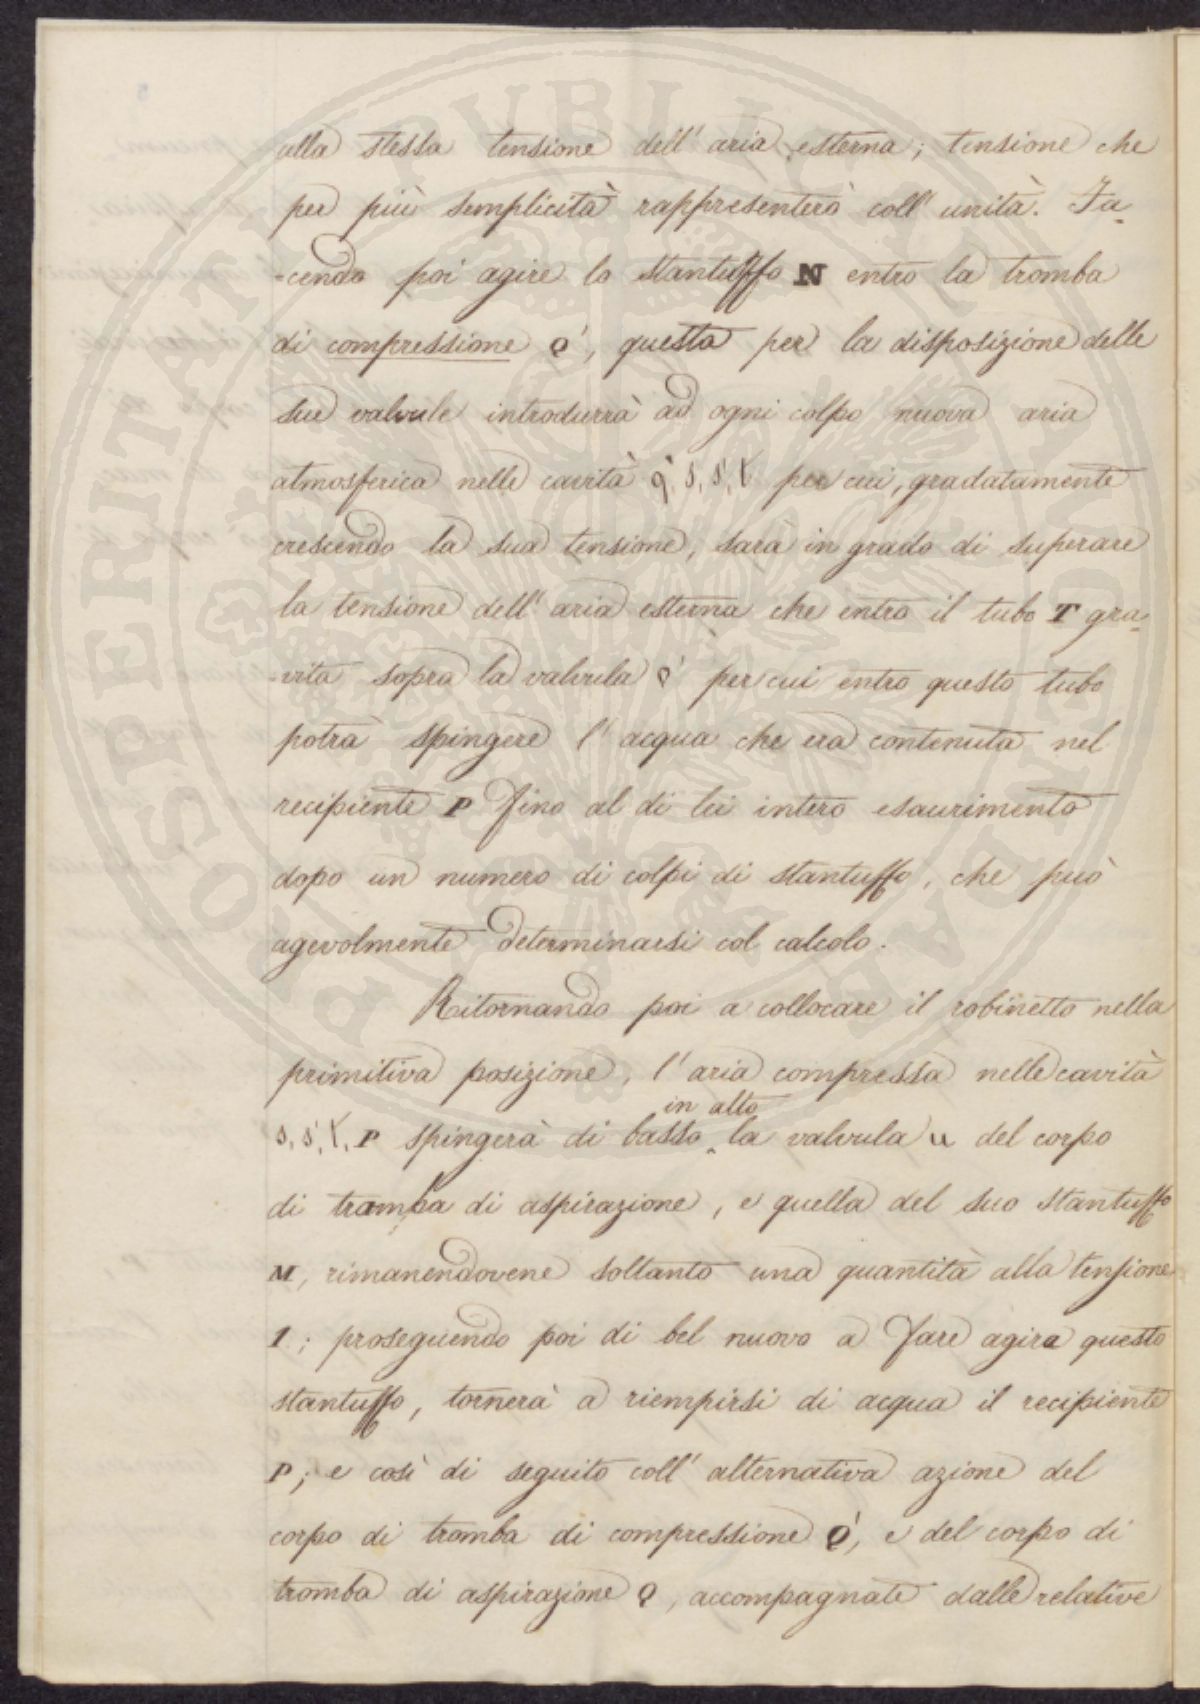 alla stessa tensione dell' aria esterna; tensione che
per più semplicità rappresenterò coll' unità. Fa-
-cendo poi agire lo stantuffo N entro la tromba
di compressione Q', questa per la disposizione delle
sue valvule introdurrà ad ogni colpo nuova aria
atmosferica nelle cavità q', s, s', t per cui, gradatamente
crescendo la sua tensione, sarà in grado di superare
la tensione dell' aria esterna che entro il tubo T gra-
-vita sopra la valvula Q' per cui entro questo tubo
potrà spingere l' acqua che era contenuta nel
recipiente P fino al di lei intero esaurimento
dopo un numero di colpi di stantuffo, che può
agevolmente determinarsi col calcolo.
Ritornando poi a collocare il robinetto nella
primitiva posizione, l' aria compressa nelle cavità
in alto
s, s', t, P spingerà di basso la valvula u del corpo
di tromba di aspirazione, e quella del suo stantuffo
M, rimanendovene soltanto una quantità alla tensione
1; proseguendo poi di bel nuovo a fare agire questo
stantuffo, tornerà a riempirsi di acqua il recipiente
P; e così di seguito coll' alternativa azione del
corpo di tromba di compressione Q', e del corpo di
tromba di aspirazione Q, accompagnate dalle relative
PROSPERITATI PUBLICAE AUGENDAE